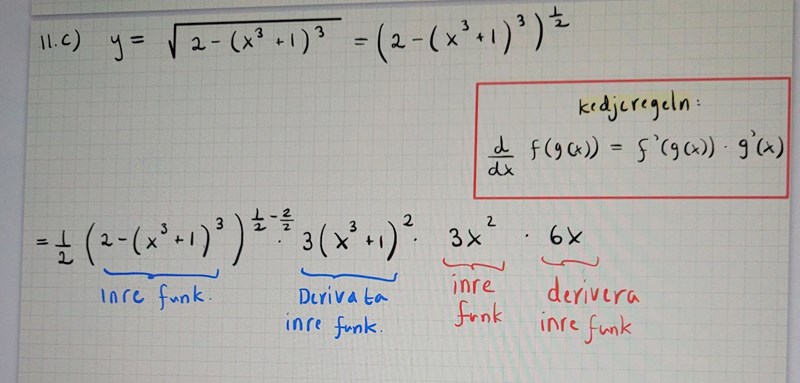 11.c) y = √(2 - (x³ + 1)³) = (2 - (x³ + 1)³)^(1/2)
kedjeregeln:
d/dx f(g(x)) = f'(g(x)) · g'(x)
= 1/2 (2 - (x³ + 1)³)^(1/2 - 2/2) · 3(x³ + 1)² · 3x² · 6x
inre funk. Derivata inre funk. inre funk derivera inre funk